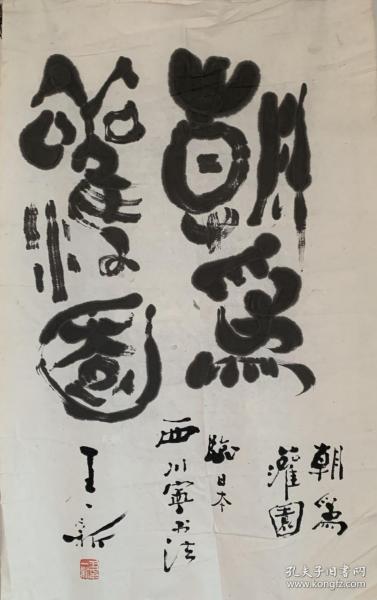 朝爲
灌園
朝爲
灌園
臨日本
西川寧书法
王新
孔夫子旧书网